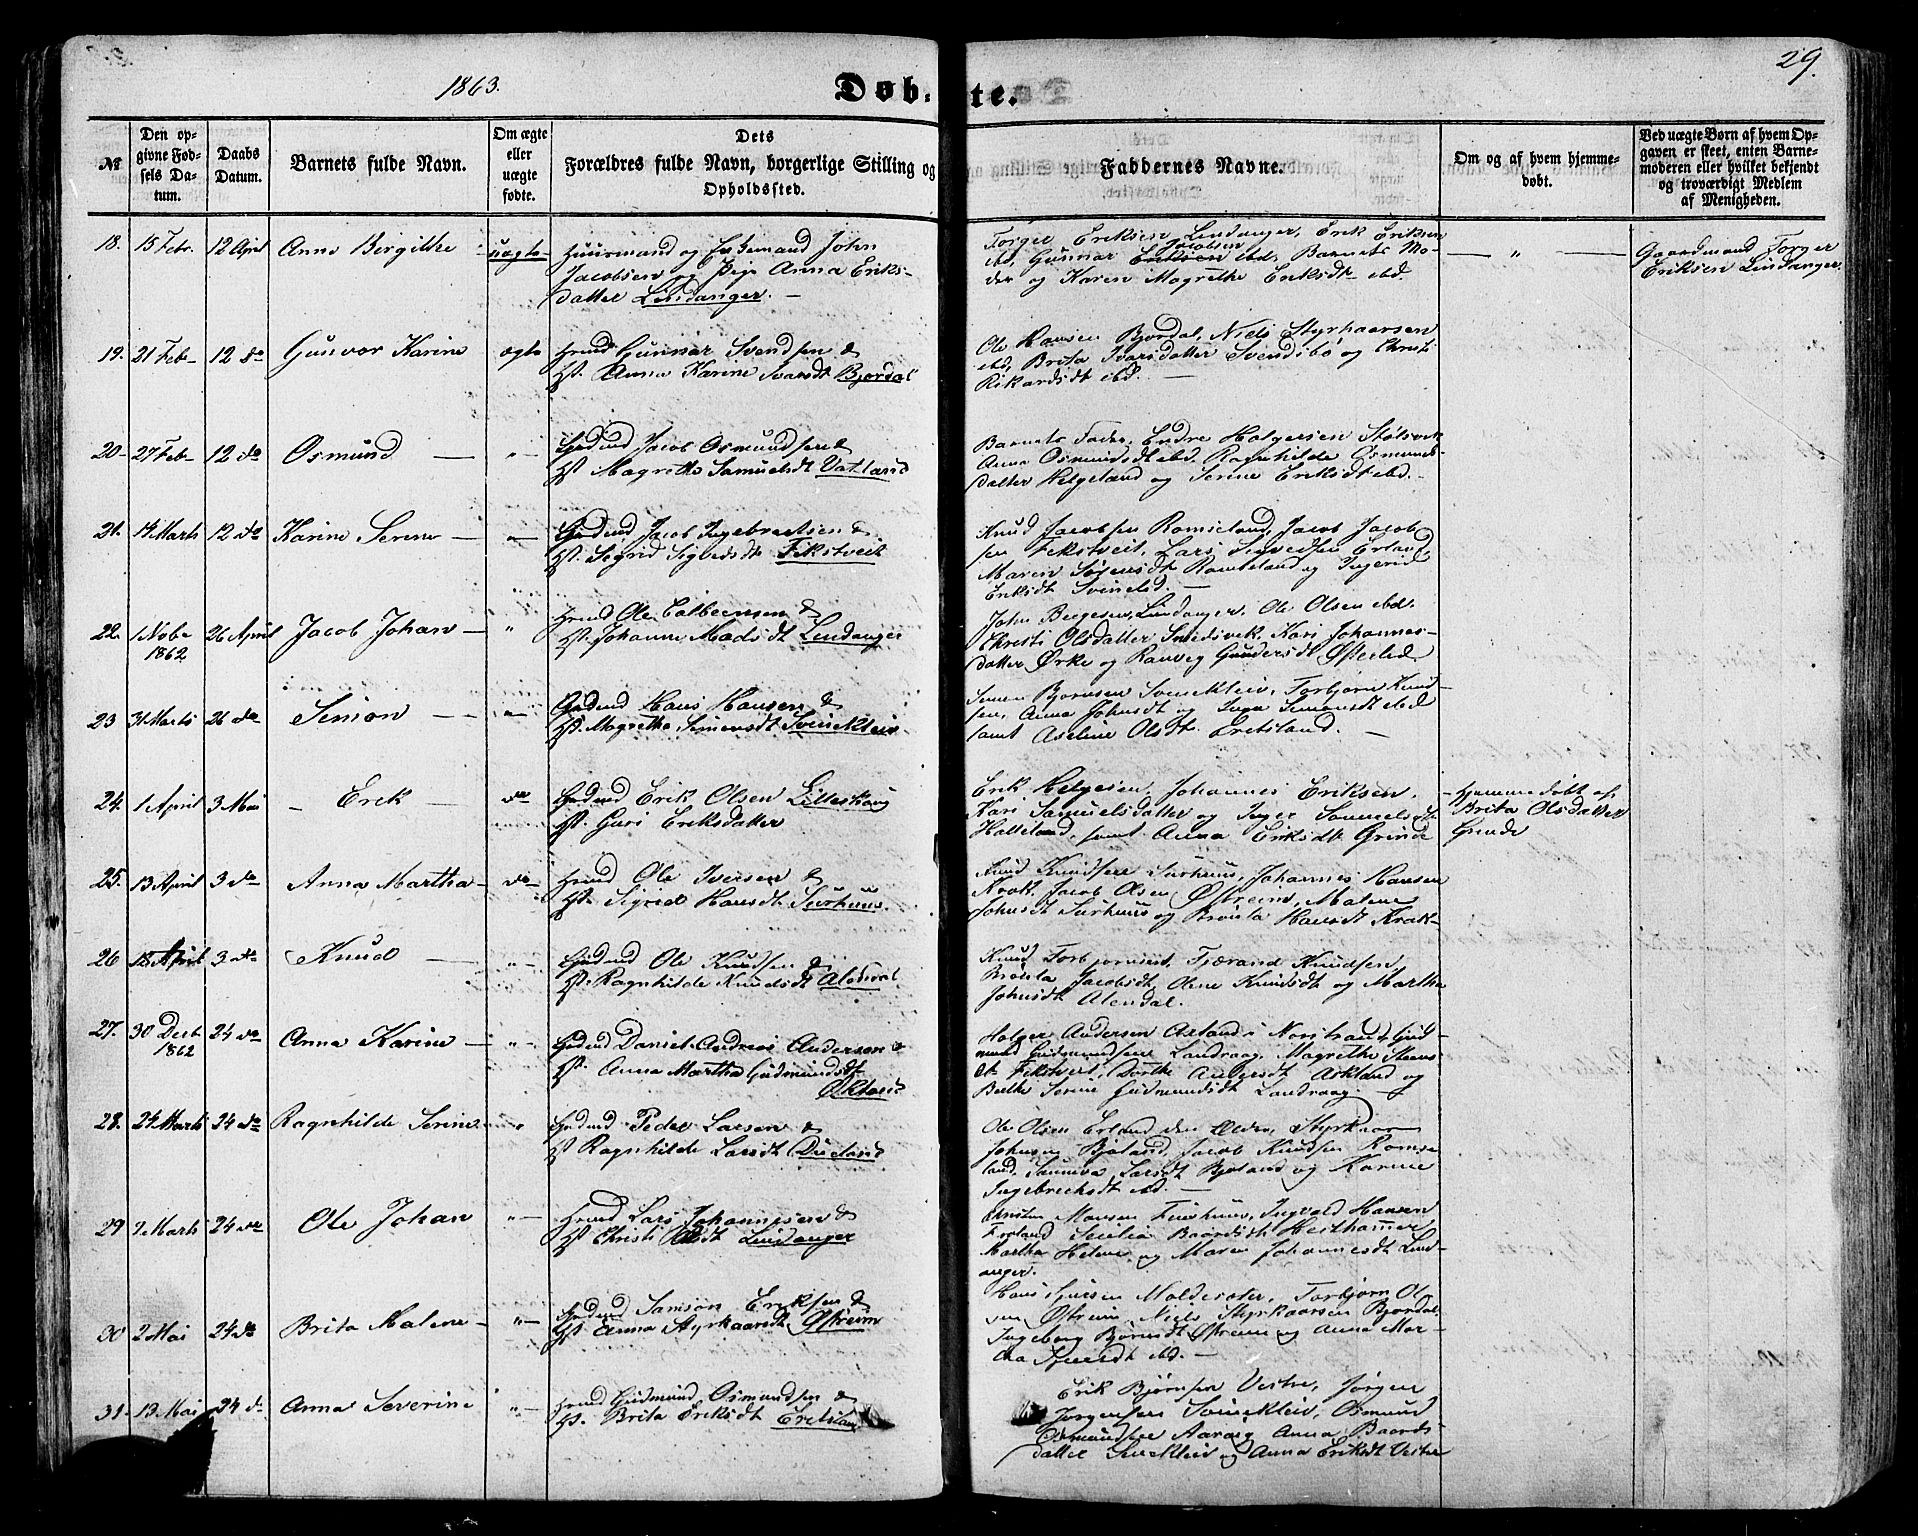 1863.
Døbte.
29.
№
Den opgivne Fødsels Datum.
Daabs Datum.
Barnets fulde Navn.
Om ægte eller uægte fødte.
Dets Forældres fulde Navn, borgerlige Stilling og Opholdssted.
Faddernes Navne.
Om og af hvem hjemmedøbt.
Ved uægte Børn af hvem Opgaven er skeet, enten Barnemoderen eller hvilket bekjendt og troværdigt Medlem af Menigheden.
18. 15 Febr. 12 April Anne Birgitthe uægte
Huusmand og Enkemand John
Jacobsen og Pige Anna Eriks-
datter Lindanger.
Torger Eriksen Lindanger, Erik Eriksen
ibd, Gunnar Jacobsen ibd. Barnets Mo-
der og Karen Magrethe Eriksdt ibd.
— " —
Gaardmand Torger
Eriksen Lindanger.
19. 21 Feb 12 do Gunvor Karine ægte
Hmd Gunnar Svendsen &
H. Anna Karine Ivarsdt Bjordal
Ole Hansen Bjordal, Niels Styrkaarsen
ibd, Brita Ivarsdatter Svendsbø og Christi
Rikardsdt ibd. —
20. 27 Feb 12 do Osmund — "
Gbdmd Jacob Osmundsen &
H. Magrethe Samuelsdt Vatland
Barnets Fader, Endre Holgersen Stølsvik
Anna Osmundsdt ibd. Ragnhilde Osmunds-
datter Helgeland og Serine Eriksdt ibd.
21. 14 Marts 12 do Karine Serine — "
Gbdmd Jacob Ingebrectsen &
H. Sigrid Sigvedsdt Fikstveit
Knud Jacobsen Romseland, Jacob Jacob
sen Fikstveit, Lars Sigvedsen Erland,
Maren Sørensdt Romseland og Ingerid
Eriksdt
22. 1 Nobr 1862 26 April Jacob Johan — "
Hmd Ole
H. Johanne Madsdt Lindanger
John Bergesen, Lindanger. Ole Olsen ibd.
Christi Olsdatter Smedsvik. Kari Johannes-
datter Ørke og Ranveig Gundersdt Østerlid
23 31 Marts 26 do Simon — "
Gbdmd Hans Hansen &
H. Magretha Simonsdt Svinekleiv
Simon Bjørnsen Svinekleiv, Torbjørn Knud-
sen, Anna Johnsdt og Inga Simonsdt ibd
samt Aseline Olsdt Eretsland. —
24. 1 April 3 Mai — Erik do
Gbdmd Erik Olsen Lilleskog
H. Guri Eriksdatter
Erik Helgesen, Johannes Eriksen,
Kari Samuelsdatter og Inger Samuelsdt
Halleland, samt Anna Eriksdt Grinde
Hjemmedøbt af
Brita Olsdatter
Grinde
25. 13 April 3 do Anna Martha — do
Hmd Ole Iversen &
H. Sigrid Hansdt Surhuus.
Knud Knudsen Surhuus, Johannes Hansen
Krok. Jacob Olsen Østreim, Malene
Johnsdt Surhuus og Brita Hansdt Krok —
26 18 April 3 do Knud — "
Gbdmd Ole Knudsen &
H. Ragnhilde Knudsdt Alendal
Knud Torbjørnsen, Tjærand Knudsen,
Brita Jacobsdt, Olene Knudsdt og Martha
Johnsdt Alendal.
27. 30 Decb. 1862 24 do Anna Karine — "
Gbdmd Daniel Andreas Andersen &
H. Anna Martha Gudmundsdt
Holger Andersen Axland i Norstrand, Gud
mund Gudmundsen Landraag, Magrethe
dt Fikstveit, Dorthe Andersdt Axland og
Berthe Serine Gudmundsdt Landraag
28. 24 Marts 24 do Ragnhilde Serine "
Gbdmd Peder Larsen &
H. Ragnhilde Larsdt Dueland
Ole Olsen Erland den Ældre, Styrkaar
Johnsen Bjoland, Jacob Knudsen Romse
land, Sanneva Larsdt Bjoland og Karine
Ingebrechtsdt ibd. —
29 2 Marts 24 do Ole Johan "
Hmd Lars Johannesen &
H. Christi Olsdt Lindanger
Christen Monsen Ingvald Hansen
Forland Secilia Baardsdt Hesthammer
Martha Helene og Maren Johannesdt Lind-
anger.
30 2 Mai 24 do Brita Malene — "
Gbdmd Samson Eriksen &
H. Anna Styrkaarsdt Østreim
Hans Sjursen Moldesæter, Torbjørn Ol-
sen Østreim, Niels Styrkaarsen Bjordal
Ingeborg Bjørnsdt Østreim og Anna Mar-
tha Sjursdt ibd. —
31. 13 Mai 24 d Anna Severine "
Hmd Gudmund Osmundsen &
H. Brita Eriksdt
Erik Bjørnsen Vestre, Jørgen
Jørgensen Svinekleiv, Osmund
Osmundsen Anna Baards-
datter Svinekleiv og Anna Eriksdt Vestre